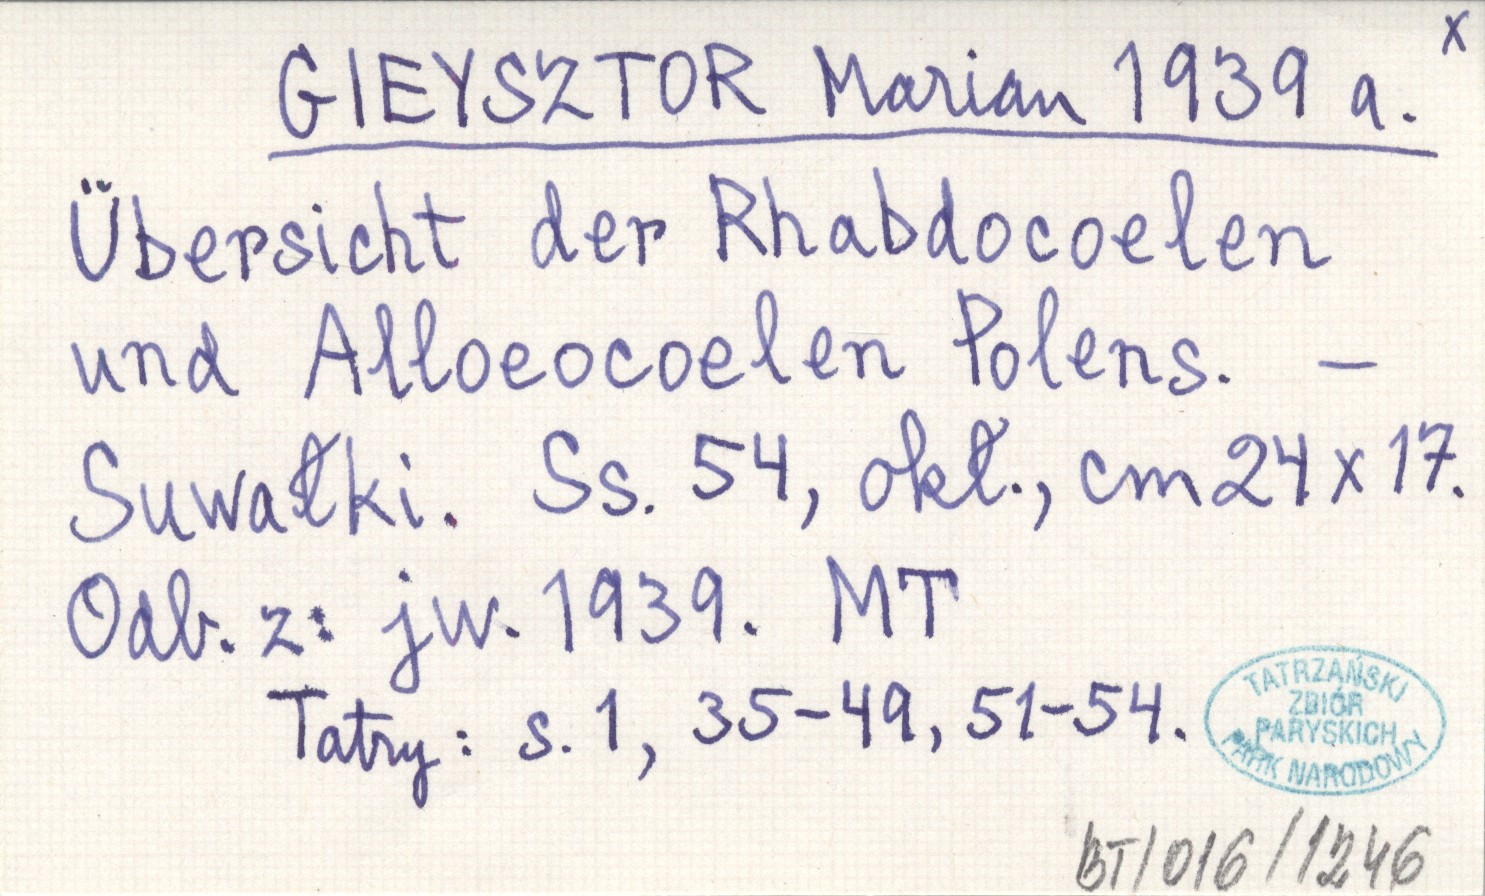 x
GIEYSZTOR Marian 1939 a.
Übersicht der Rhabdocoelen
und Alloeocoelen Polens. —
Suwałki. Ss. 54, okł., cm 24 x 17.
Odb. z: jw. 1939. MT
Tatry: s. 1, 35-49, 51-54.
TATRZAŃSKI
ZBIÓR
PARYSKICH
PARK NARODOWY
BT/016/1246